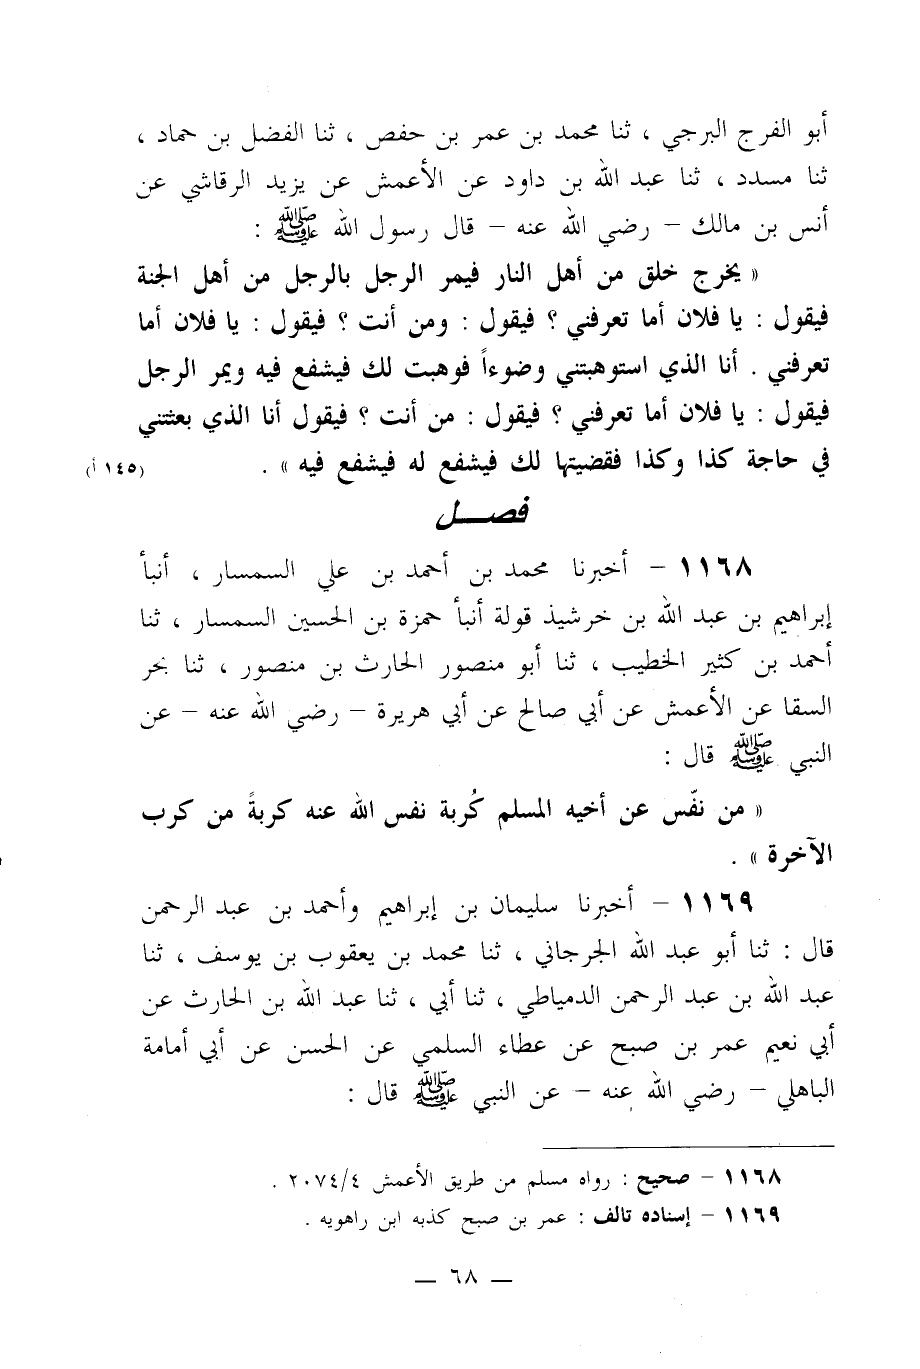 أبو الفرج البرجي ، ثنا محمد بن عمر بن حفص ، ثنا الفضل بن حماد ،
ثنا مسدد ، ثنا عبد الله بن داود عن الأعمش عن يزيد الرقاشي عن
أنس بن مالك – رضي الله عنه – قال رسول الله ﷺ :
« يخرج خلق من أهل النار فيمر الرجل بالرجل من أهل الجنة
فيقول : يا فلان أما تعرفني ؟ فيقول : ومن أنت ؟ فيقول : يا فلان أما
تعرفني . أنا الذي استوهبتني وضوءاً فوهبت لك فيشفع فيه ويمر الرجل
فيقول : يا فلان أما تعرفني ؟ فيقول : من أنت ؟ فيقول أنا الذي بعثتني
في حاجة كذا وكذا فقضيتها لك فيشفع له فيشفع فيه » . (١٤٥ أ)
فصـــل
١١٦٨ – أخبرنا محمد بن أحمد بن علي السمسار ، أنبأ
إبراهيم بن عبد الله بن خرشيذ قولة أنبأ حمزة بن الحسين السمسار ، ثنا
أحمد بن كثير الخطيب ، ثنا أبو منصور الحارث بن منصور ، ثنا بحر
السقا عن الأعمش عن أبي صالح عن أبي هريرة – رضي الله عنه – عن
النبي ﷺ قال :
« من نفّس عن أخيه المسلم كُربة نفس الله عنه كربةً من كرب
الآخرة » .
١١٦٩ – أخبرنا سليمان بن إبراهيم وأحمد بن عبد الرحمن
قال : ثنا أبو عبد الله الجرجاني ، ثنا محمد بن يعقوب بن يوسف ، ثنا
عبد الله بن عبد الرحمن الدمياطي ، ثنا أبي ، ثنا عبد الله بن الحارث عن
أبي نعيم عمر بن صبح عن عطاء السلمي عن الحسن عن أبي أمامة
الباهلي – رضي الله عنه – عن النبي ﷺ قال :
١١٦٨ – صحيح : رواه مسلم من طريق الأعمش ٢٠٧٤/٤ .
١١٦٩ – إسناده تالف : عمر بن صبح كذبه ابن راهويه .
— ٦٨ —